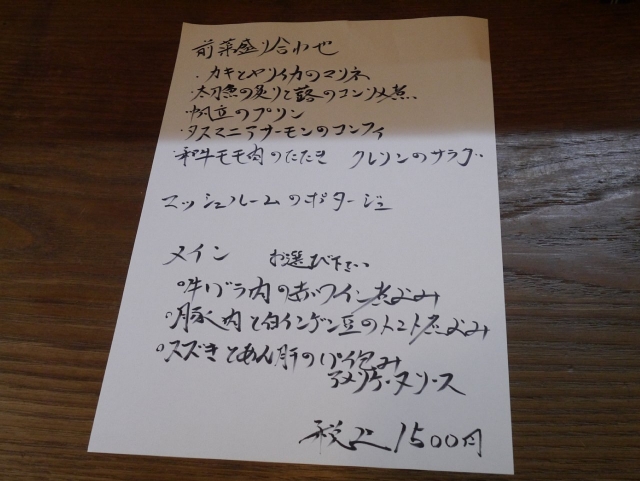 前菜盛り合わせ
・カキとヤリイカのマリネ
・太刀魚の炙りと蕗のコンソメ煮
・帆立のプリン
・タスマニアサーモンのコンフィ
・和牛モモ肉のたたき クレソンのサラダ
マッシュルームのポタージュ
メイン お選び下さい
○牛バラ肉の赤ワイン煮込み
○豚肉と白インゲン豆のトマト煮込み
○スズキとあん肝のパイ包み
アメリケーヌソース
税込1500円